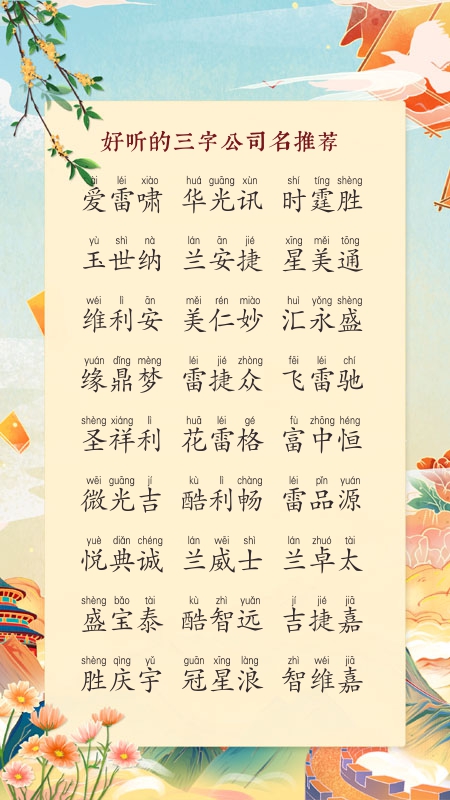 好听的三字公司名推荐
ài léi xiào huá guāng xùn shí tíng shèng
爱雷啸 华光讯 时霆胜
yù shì nà lán ān jié xīng měi tōng
玉世纳 兰安捷 星美通
wéi lì ān měi rén miào huì yǒng shèng
维利安 美仁妙 汇永盛
yuán dǐng mèng léi jié zhòng fēi léi chí
缘鼎梦 雷捷众 飞雷驰
shèng xiáng lì huā léi gé fù zhōng héng
圣祥利 花雷格 富中恒
wēi guāng jí kù lì chàng léi pǐn yuán
微光吉 酷利畅 雷品源
yuè diǎn chéng lán wēi shì lán zhuó tài
悦典诚 兰威士 兰卓太
shèng bǎo tài kù zhì yuǎn jí jié jiā
盛宝泰 酷智远 吉捷嘉
shèng qìng yǔ guān xīng làng zhì wéi jiā
胜庆宇 冠星浪 智维嘉